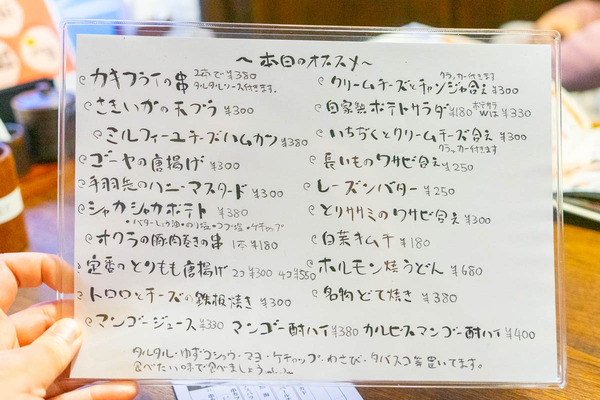 ～本日のオススメ～
カキフライの串 2本で¥380
タルタルソース付きます。
さきいかの天プラ ¥300
ミルフィーユチーズハムカツ ¥380
ゴーヤの唐揚げ ¥300
手羽先のハニーマスタード ¥300
シャカシャカポテト ¥380
・バターしょう油・のり塩・コブ塩・ケチャップ
オクラの豚肉巻きの串 1本¥180
定番のとりもも唐揚げ 2コ¥300 4コ¥550
トロロとチーズの鉄板焼き ¥300
クラッカー付きます
クリームチーズとチャンジャ合え ¥300
自家製ポテトサラダ ¥180 ポテサラWは¥330
いちぢくとクリームチーズ合え ¥300
クラッカー付きます
長いものワサビ合え ¥250
レーズンバター ¥250
とりササミのワサビ合え ¥300
白菜キムチ ¥180
ホルモン焼うどん ¥680
名物どて焼き ¥380
マンゴージュース ¥330 マンゴー酎ハイ ¥380 カルピスマンゴー酎ハイ ¥400
タルタル・ゆずコショウ・マヨ・ケチャップ・わさび・タバスコ等置いてます。
食べたい味で食べましょう